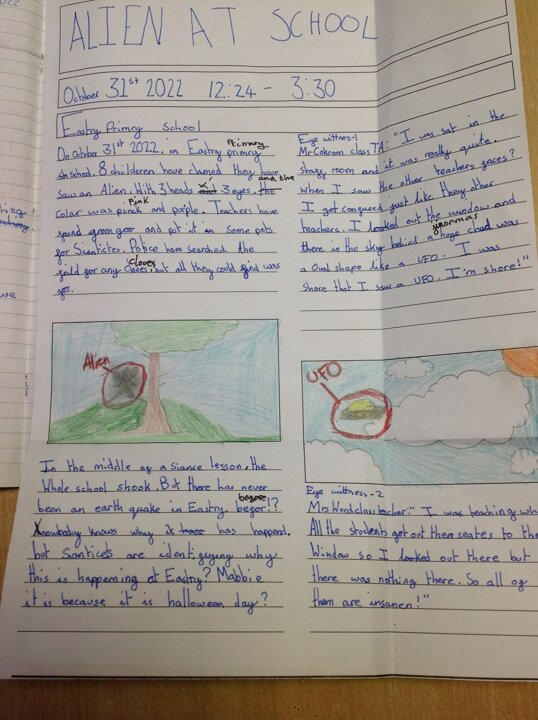 ALIEN AT SCHOOL
October 31st 2022 12:24 - 3:30
Eastry Primry School
On October 31st 2022, in Eastry primrcy Primary
School. 8 childeren have clamed they have
saw an Alien. With 3 heads 3 eyes. the and blue
colar was pinck pink and pirple. Teachers have
found green goo and pot it in some pots
for Sientictes. Police have searched the
feild for any cloves clowes, but all they could find was
goo.
Alien
In the middle of a siance lesson, the
whole school shook. But there has never
been an earth quake in Eastry before!?
knowbody knows why it has happend,
but Sianticts are identifying why
this is happening at Eastry? Mabbie
it is because it is halloween day?
Eye witness-1
Mr Cokrom class TA: "I was sat in the
stagg room and it was really quite.
When I saw the other teachers faces?
I got confused just like thery other
teachers. I looked out the window and
there in the sky behind a huge enormas cloud was
a Oval shape like a UFO. I was
shore that I saw a UFO. I'm shore!"
UFO
Eye wittness-2
Mrs Word class teacher: "I was teaching
All the students get out there seates to the
Window so I looked out there but
there was nothing there. So all of
them are insanen!"